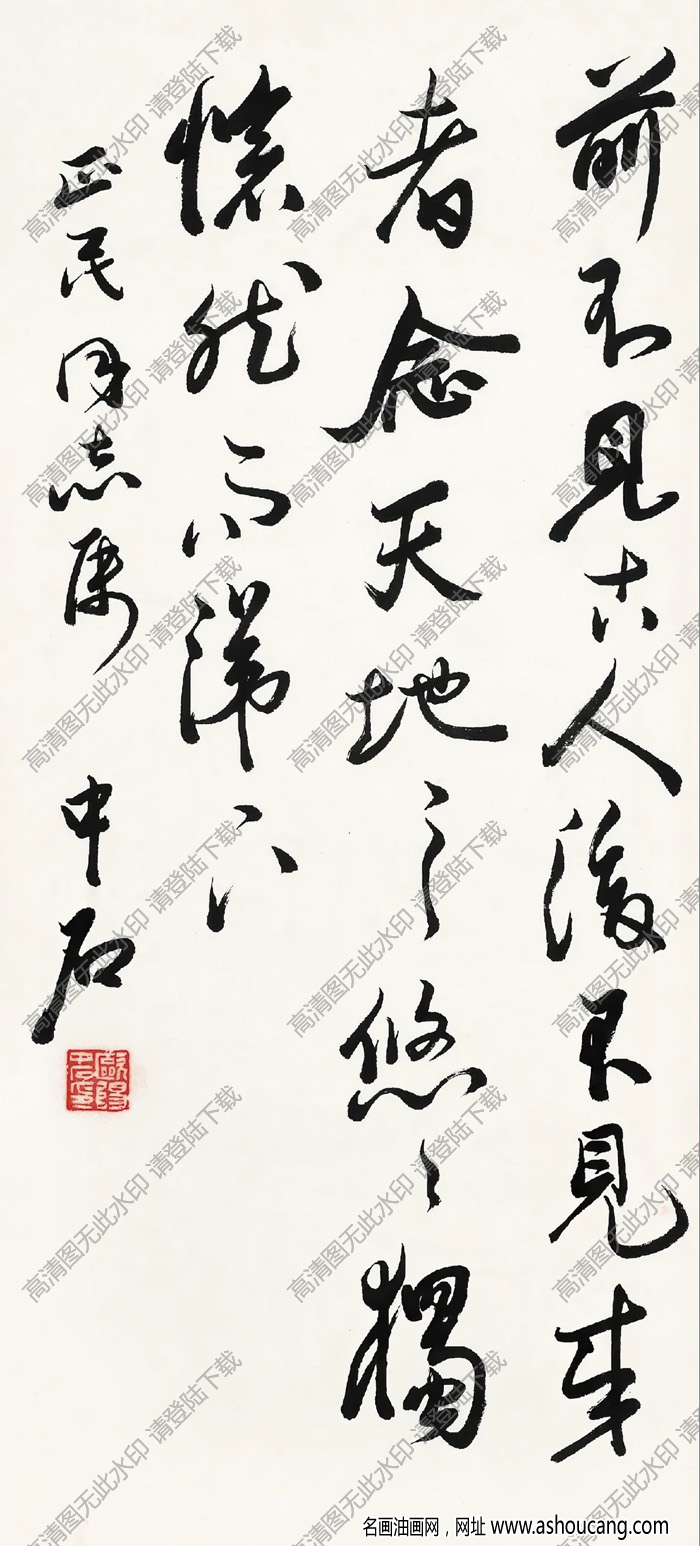 前不見古人後不見来
者念天地之悠〻獨
愴然而涕下
正民同志属
中石
歐陽中石印
名画油画网，网址 www.ashoucang.com
高清图无此水印 请登陆下载